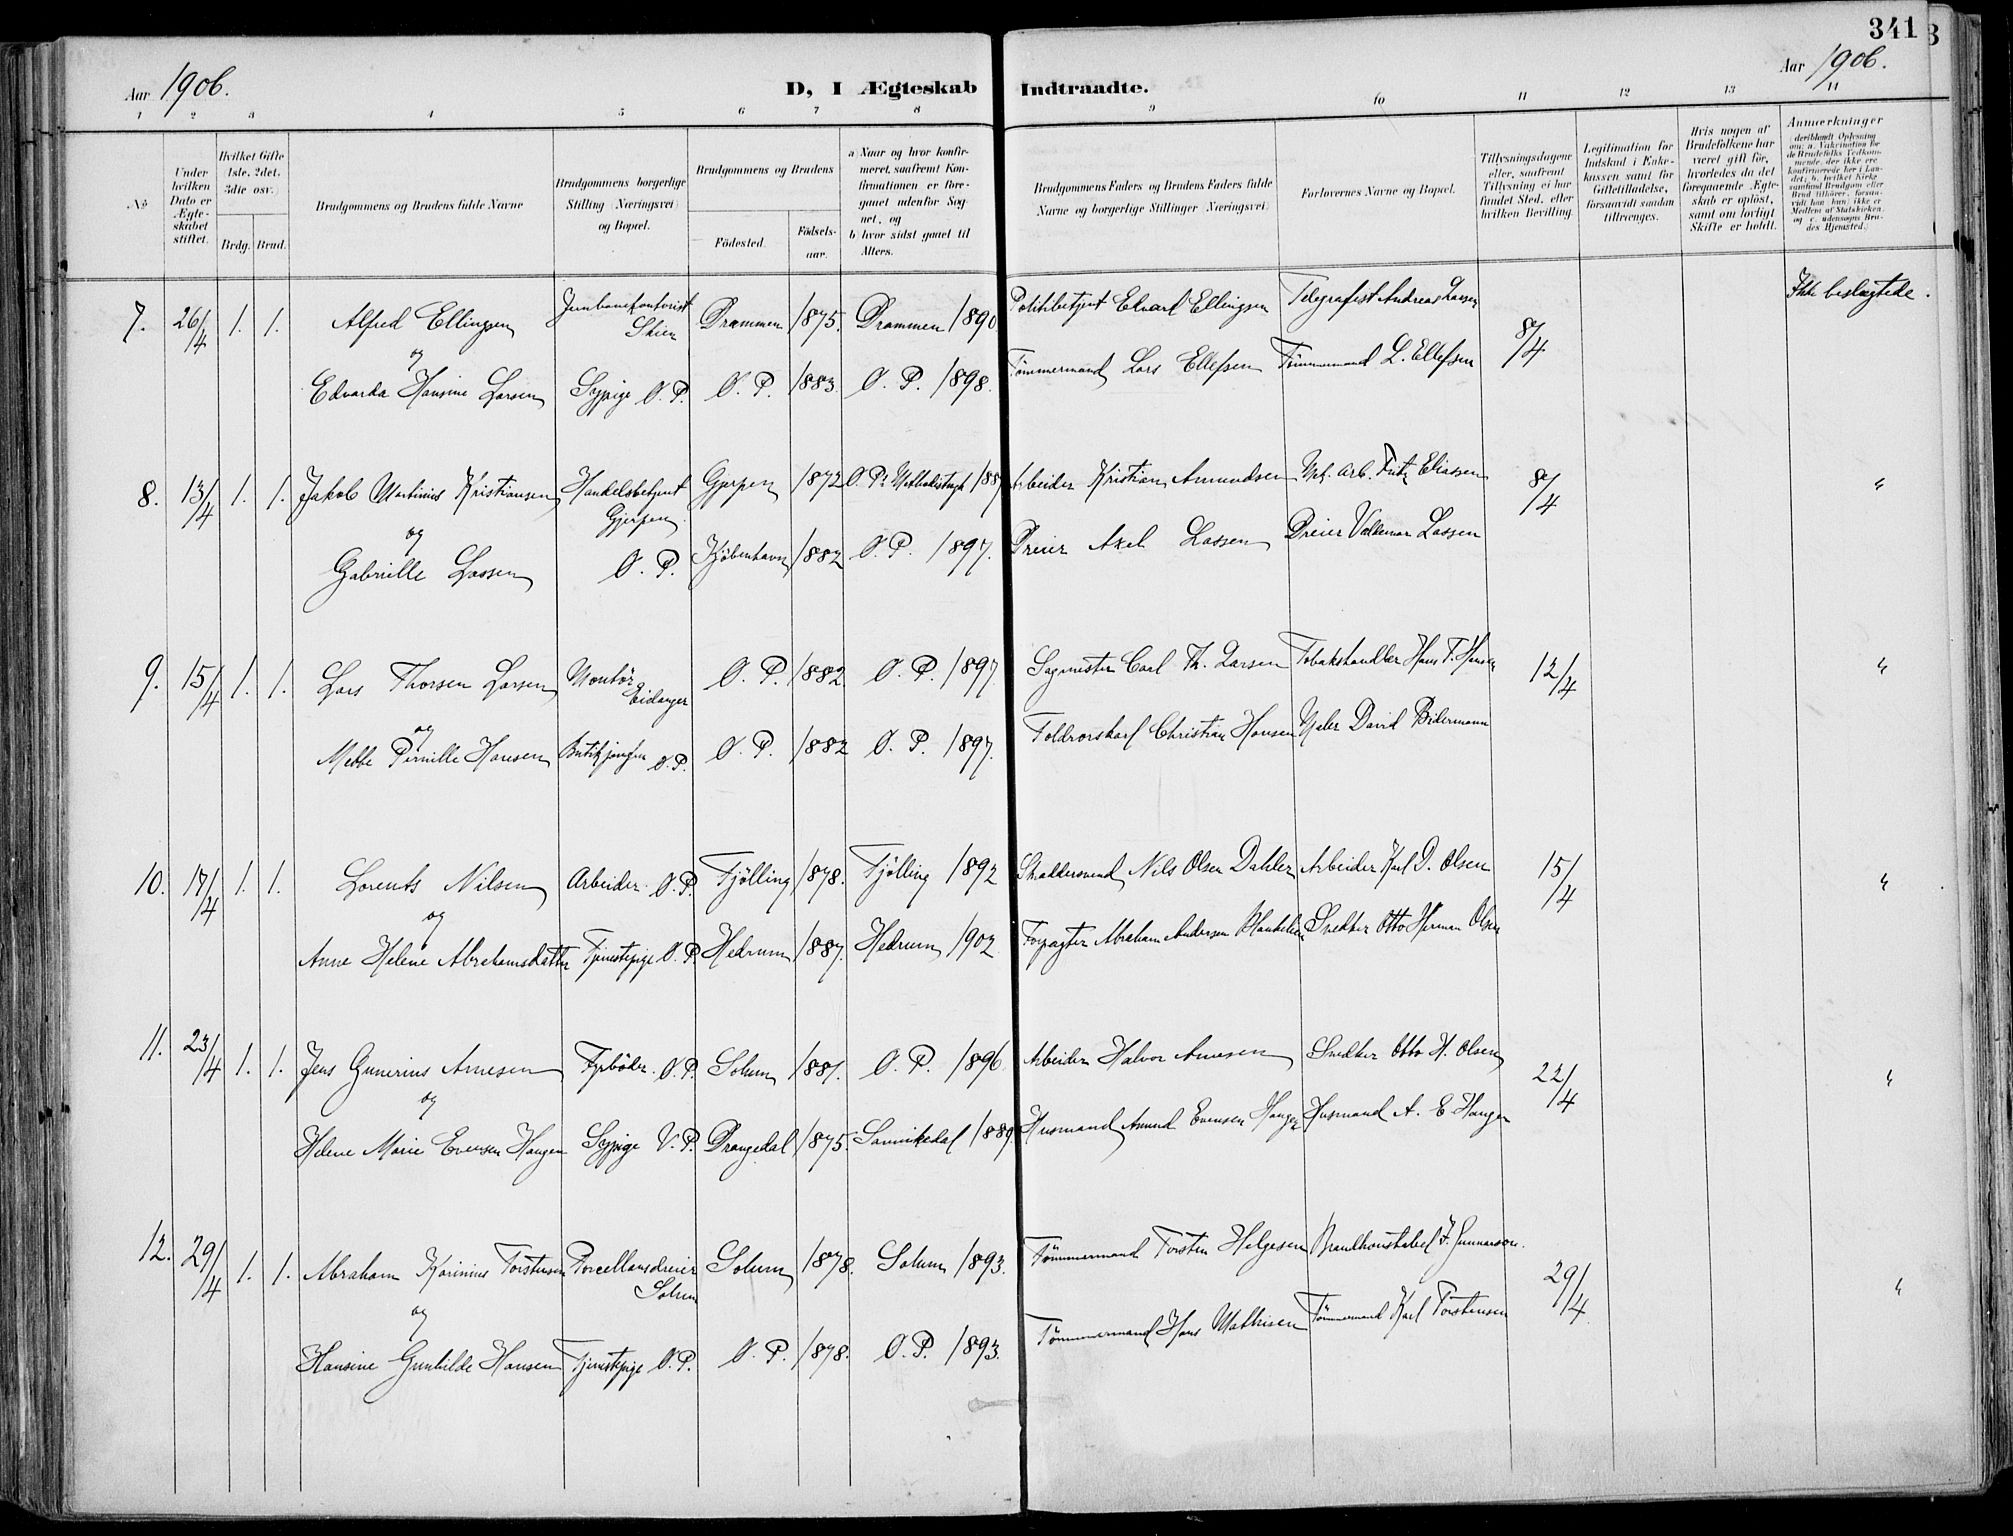 341
Aar 1906.
D, I Ægteskab Indtraadte.
Aar 1906.
1 2 3 4 5 6 7 8 9 10 11 12 13 14
No
Under hvilken Dato er Ægteskabet stiftet.
Hvilket Gifte 1ste, 2det, 3die osv.
Brdg. Brud.
Brudgommens og Brudens fulde Navne
Brudgommens borgerlige Stilling (Næringsvei) og Bopæl.
Brudgommens og Brudens
Fødested. Fødselsaar.
a) Naar og hvor konfirmeret, saafremt Konfirmationen er foregaaet udenfor Sognet, og
b) hvor sidst gaaet til Alters.
Brudgommens Faders og Brudens Faders fulde Navne og borgerlige Stillinger (Næringsvei)
Forlovernes Navne og Bopæl.
Tillysningsdagene eller, saafremt Tillysning ei har fundet Sted, efter hvilken Bevilling.
Legitimation for Indskud i Enkekassen samt for Giftetilladelse, forsaavidt saadan tiltrænges.
Hvis nogen af Brudefolkene har været gift før, hvorledes da det foregaaende Ægteskab er opløst, samt om lovligt Skifte er holdt.
Anmærkninger
7. 26/4 1. 1. Alfred Ellingsen Jernbanekontorist Skien Drammen 1875. Drammen 1890. Politibetjent Edvard Ellingsen Telegrafist Andreas Larsen 8/4 Ikke beslægtede.
og
Edvarda Hansine Larsen Sypige O. P. O. P. 1883. O. P. 1898. Tømmermand Lars Ellefsen Tømmermand L. Ellefsen
8. 13/4 1. 1. Jakob Martinius Kristiansen Handelsbetjent Gjerpen. Gjerpen 1872 O. P. Arbeider Kristian Amundsen Arb. Fritz Eliassen 8/4 "
og
Gabrielle Lassen O. P. Kjøbenhavn 1882 O. P. 1897. Dreier Axel Lassen Dreier Valdemar Lassen
9. 15/4 1. 1. Lars Thorsen Larsen Montör Eidanger O. P. 1882. O. P. 1897 Sagmester Carl Th. Larsen Tobakshandler Hans T. Hansen 12/4 "
og
Mette Pernille Hansen Butikjomfru O. P. O. P. 1882 O. P. 1897. Toldrorskarl Christian Hansen Maler David Bidermann
10. 17/4 1. 1. Lorents Nilsen Arbeider O. P. Tjølling 1878. Tjølling 1892 Skräddersvend Nils Olsen Dahler Arbeider Karl D. Olsen 15/4 "
og
Anne Helene Abrahamsdatter Tjenestepige O. P. Hedrum 1887. Hedrum 1902 Forpagter Abraham Andersen Snedker Otto Herman Olsen
11. 23/4 1. 1. Jens Gunerius Arnesen Fyrböder O. P. Solum 1881. O. P. 1896 Arbeider Halvor Arnesen Snedker Otto H. Olsen 22/4 "
og
Helene Marie Evensen Haugen Sypige V. P. Drangedal 1875. Sannikedal 1889. Husmand Amund Evensen Haugen Husmand A. E. Haugen
12. 29/4 1. 1. Abraham Karinius Torstensen Porcellansdreier Solum Solum 1878. Solum 1893. Tømmermand Torsten Helgesen Brandkonstabel J. Gunnarson. 29/4 "
og
Hansine Gunhilde Hansen Tjenestepige O. P. O. P. 1878. O. P. 1893. Tømmermand Hans Mathisen Tømmermand Karl Torstensen